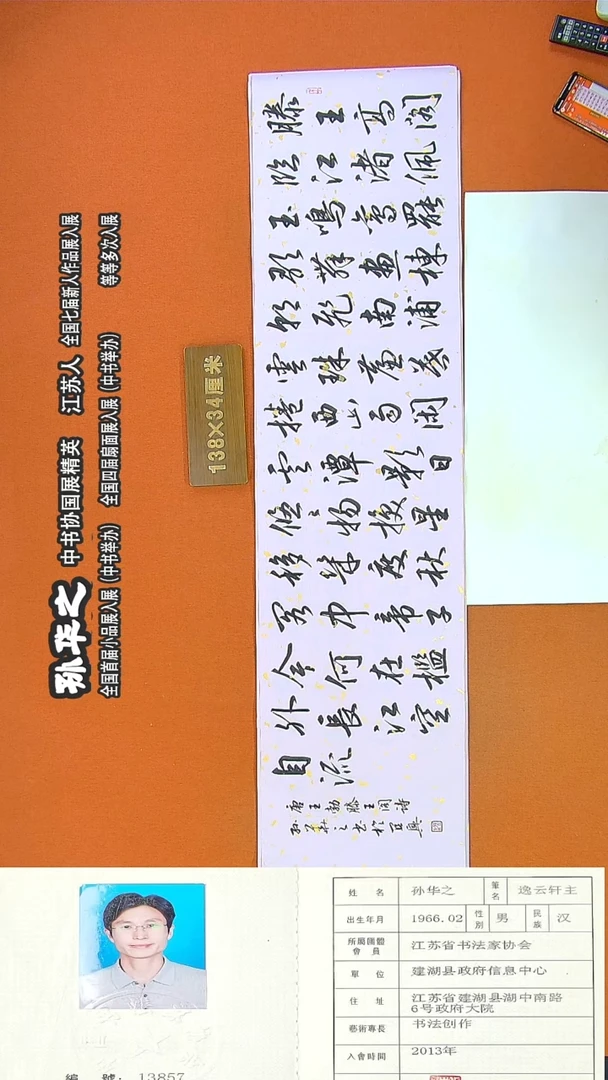 孙华之 中书协国展精英 江苏人 全国七届新人作品展入展
全国首届小品展入展(中书举办) 全国四届扇面展入展(中书举办) 等等多次入展
138×34厘米
滕王高閣
臨江渚佩
玉鳴鸞罷
歌舞畫棟
朝飛南浦
雲珠簾暮
捲西山雨閑
雲潭影日
悠〻物換星
移幾度秋
閣中帝子
今何在檻
外長江空
自流
唐王勃滕王閣詩
孫華之書於
姓名 孙华之 筆名 逸云轩主
出生年月 1966.02 性别 男 民族 汉
所屬團體會員 江苏省书法家协会
單位 建湖县政府信息中心
住址 江苏省建湖县湖中南路
6号政府大院
藝術專長 书法创作
入會時間 2013年
編號: 13857